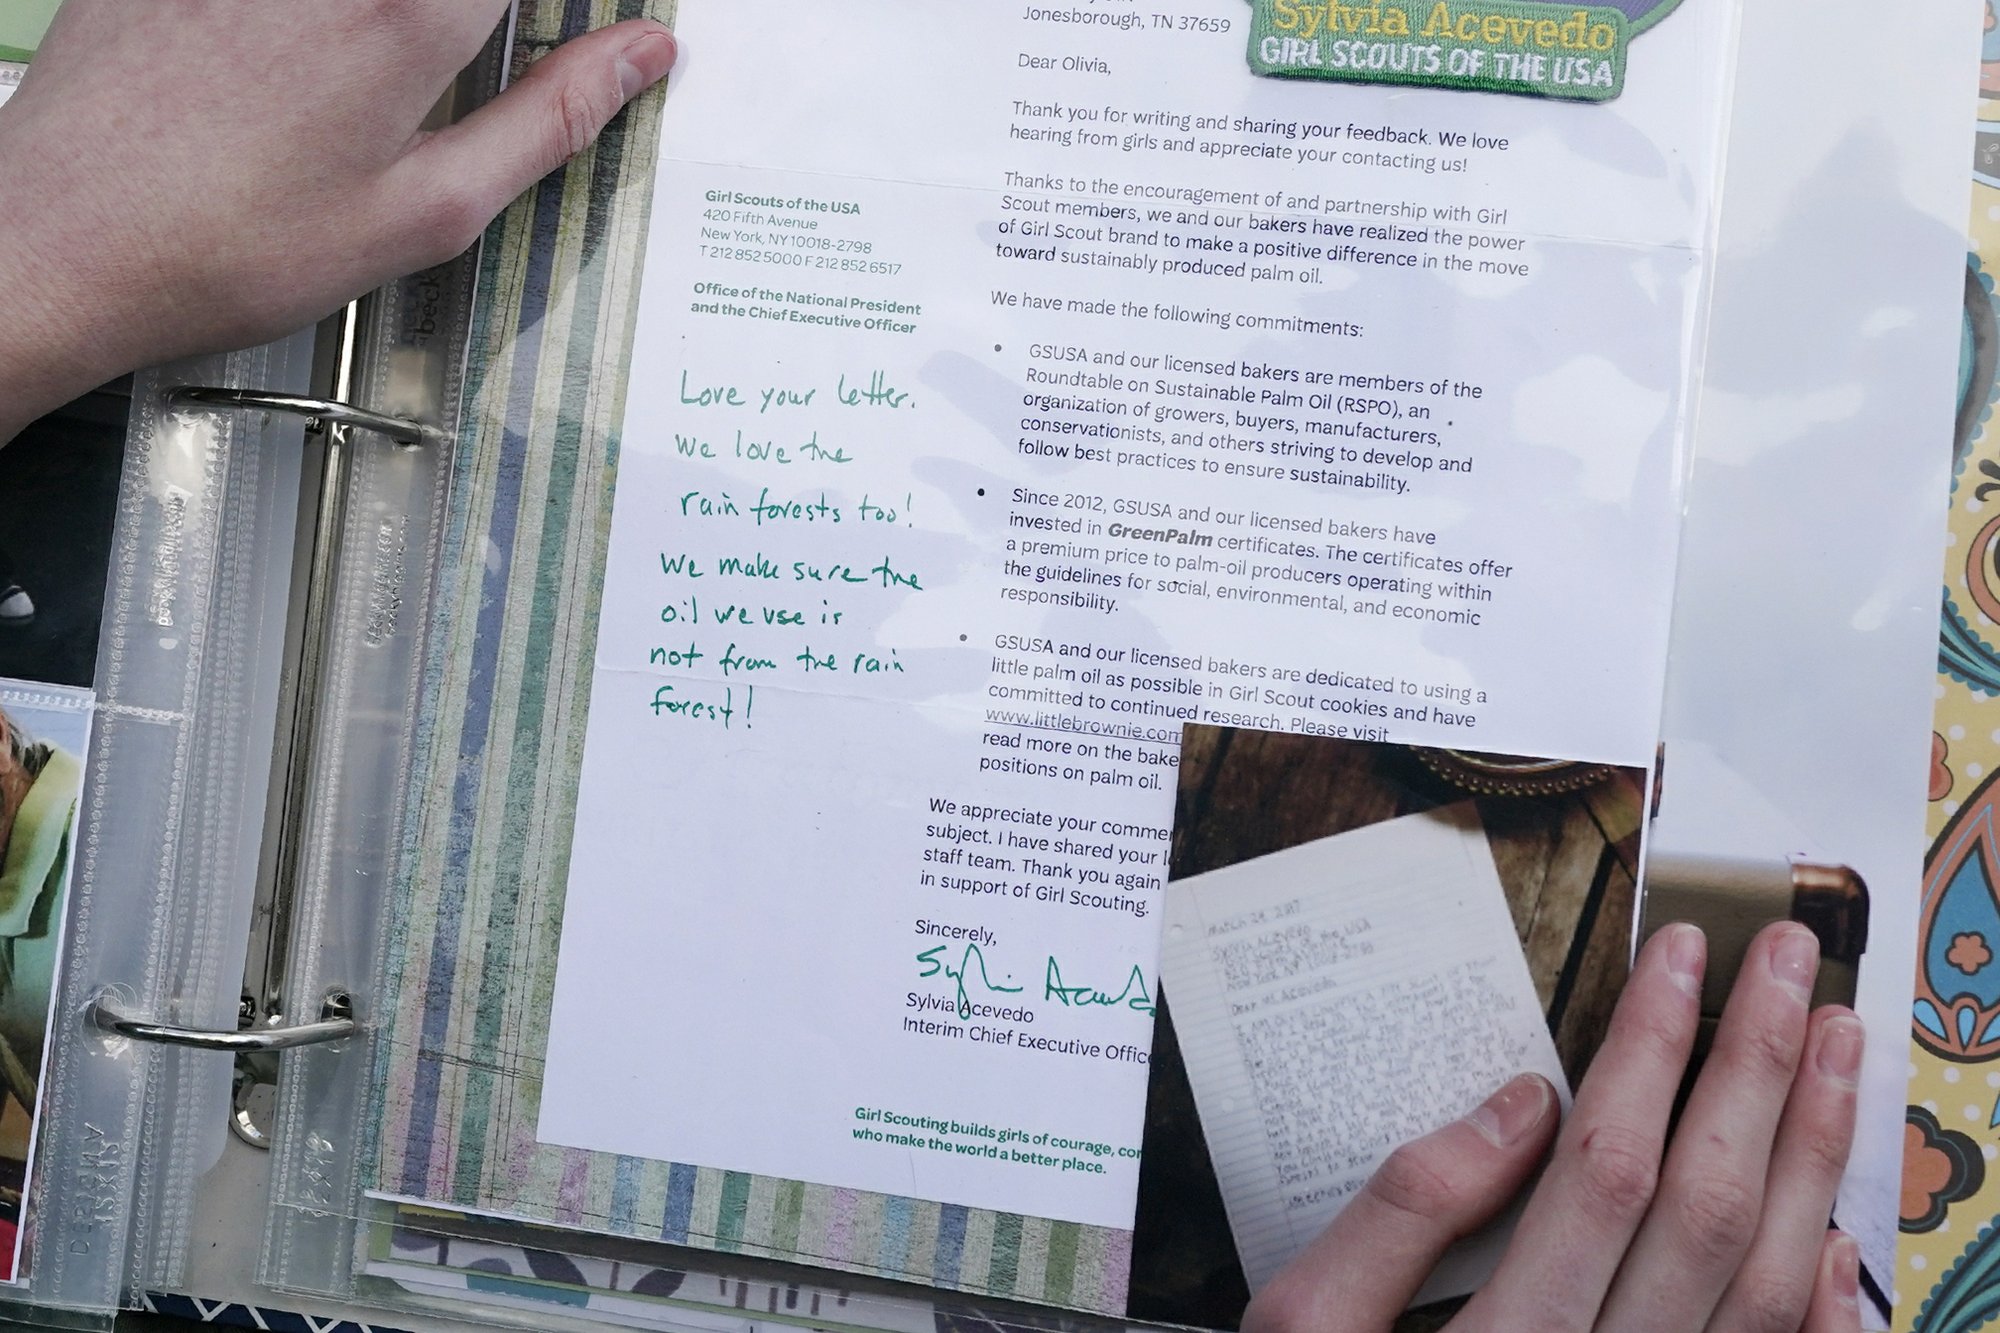 Sylvia Acevedo
GIRL SCOUTS OF THE USA
Jonesborough, TN 37659
Dear Olivia,
Thank you for writing and sharing your feedback. We love
hearing from girls and appreciate your contacting us!
Thanks to the encouragement of and partnership with Girl
Scout members, we and our bakers have realized the power
of Girl Scout brand to make a positive difference in the move
toward sustainably produced palm oil.
We have made the following commitments:
• GSUSA and our licensed bakers are members of the
Roundtable on Sustainable Palm Oil (RSPO), an
organization of growers, buyers, manufacturers,
conservationists, and others striving to develop and
follow best practices to ensure sustainability.
• Since 2012, GSUSA and our licensed bakers have
invested in GreenPalm certificates. The certificates offer
a premium price to palm-oil producers operating within
the guidelines for social, environmental, and economic
responsibility.
• GSUSA and our licensed bakers are dedicated to using a
little palm oil as possible in Girl Scout cookies and have
committed to continued research. Please visit
www.littlebrownie.com
read more on the bake
positions on palm oil.
We appreciate your comme
subject. I have shared your l
staff team. Thank you again
in support of Girl Scouting.
Sincerely,
Sylvia Acevedo
Sylvia Acevedo
Interim Chief Executive Office
Girl Scouts of the USA
420 Fifth Avenue
New York, NY 10018-2798
T 212 852 5000 F 212 852 6517
Office of the National President
and the Chief Executive Officer
Love your letter.
We love the
rain forests too!
We make sure the
oil we use is
not from the rain
forest!
Girl Scouting builds girls of courage, con
who make the world a better place.
March 29, 2017
Sylvia Acevedo
New York NY 10018-2798
Dear Ms. Acevedo